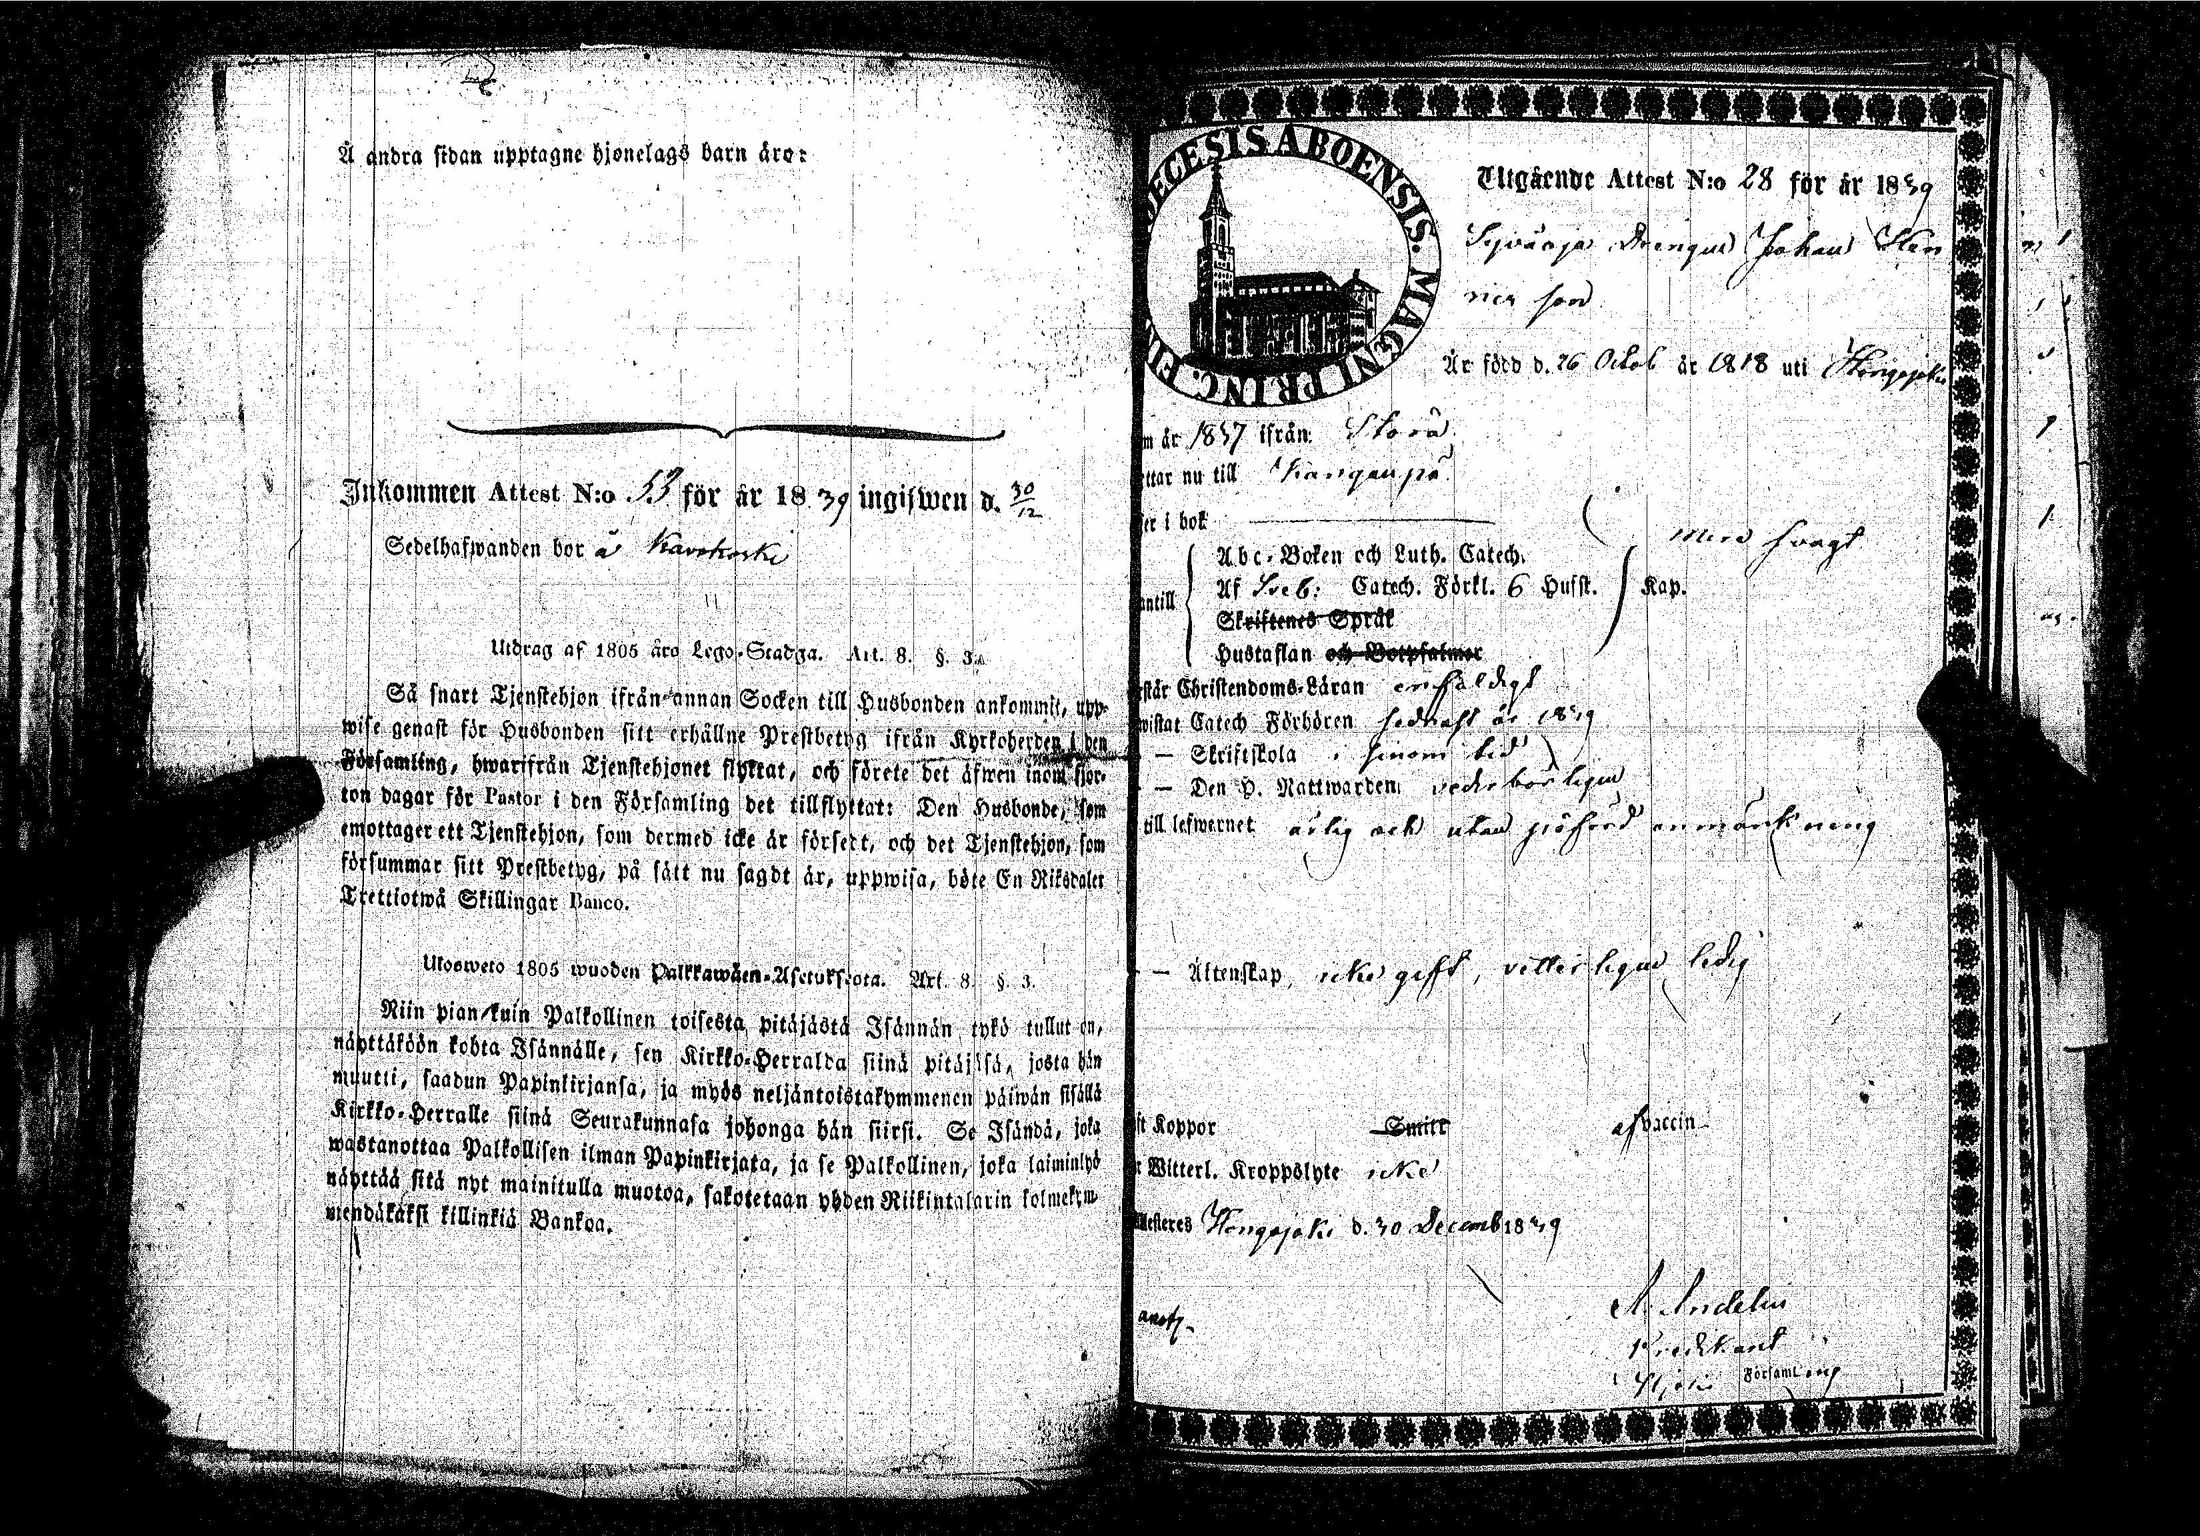 Å andra sidan upptagne hjonelags barn äro:
Inkommen Attest N:o 53 för år 1839 ingifwen d. 30/12
Sedelhafwanden bor å
Utdrag af 1805 års Lego-Stadga. Art. 8. §. 3.
Så snart Tjenstehjon ifrån annan Socken till Husbonden ankommit, upp-
wise genast för Husbonden sitt erhållne Prestbetyg ifrån Kyrkoherden i den
Församling, hwarifrån Tjenstehjonet flyttat, och förete det äfwen inom fjor-
ton dagar för Pastor i den Församling det tillflyttat: Den Husbonde, som
emottager ett Tjenstehjon, som dermed icke är försedt, och det Tjenstehjon, som
försummar sitt Prestbetyg, på sätt nu sagdt är, uppwisa, böte En Riksdaler
Trettiotwå Skillingar Banco.
Ulosweto 1805 wuoden Palkkawäen-Asetuksesta. Art. 8. §. 3.
Niin pian kuin Palkollinen toisesta pitäjästä Isännän tykö tullut on,
näyttäköön kohta Isännälle, sen Kirkko-Herralda siinä pitäjäsä, josta hän
muutti, saadun Papinkirjansa, ja myös neljäntoistakymmenen päiwän sisällä
Kirkko-Herralle siinä Seurakunnasa johonga hän siirsi. Se Isändä, joka
wastanottaa Palkollisen ilman Papinkirjata, ja se Palkollinen, joka laiminlyö
näyttää sitä nyt mainitulla muotoa, sakotetaan yhden Riikintalarin kolmekym-
mendäkaksi killinkiä Bankoa.
DIECESIS ABOENSIS. MAGNI PRINC. FIN
Utgående Attest N:o 28 för år 1839
Drengen Johan
son
Är född d. 26 Octob år 1818 uti Hongojoki
m år 1837 ifrån Storå
ttar nu till Kanganpä
er i bok
med svagt
Abc-Boken och Luth. Catech.
antill Af Sveb: Catech. Förkl. 6 Husst. Kap.
Skriftenes Språk
Hustaflan och Botpsalmer
står Christendoms-Läran enfaldigt
wistat Catech Förhören sednast år 1839
— Skriftskola i sinom tid
— Den H. Nattwarden vederbörligen
till lefwernet ärlig och utan anmärkning
— Äktenskap, icke gift, vetterligen ledig
ft Koppor Smitt af vaccin
Witterl. Kroppslyte icke
Attesteres Hongojoki d. 30 Decemb 1839
Predikant
Församling